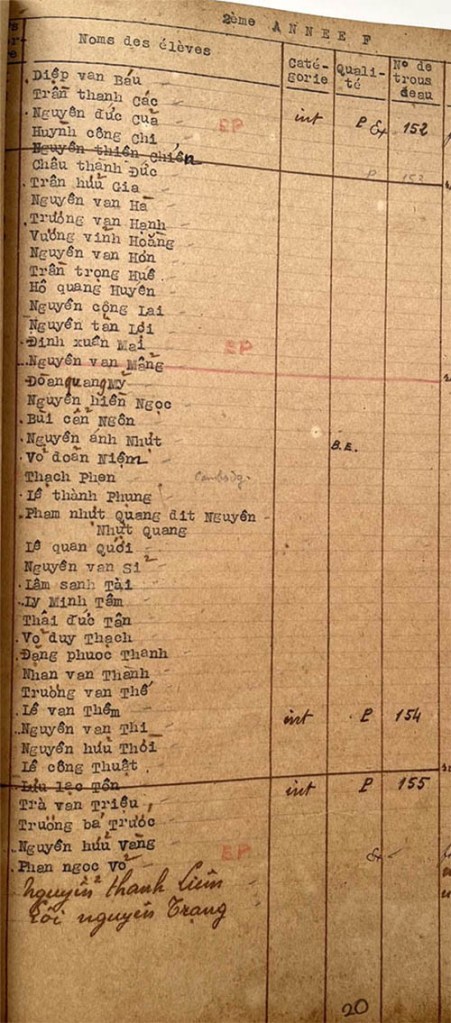 2ème ANNEE F
Noms des élèves
Caté-
gorie
Quali-
té
N° de
trous
deau
Diệp van Báu
Trần thanh Các
Nguyễn đức Của int P Ex 152
Huỳnh công Chi
Nguyễn thiên Chiến
Châu thành Đức P 153
Trần hữu Gia
Nguyễn van Hà
Trương van Hạnh
Vương vinh Hoằng
Nguyễn van Hơn
Trần trọng Huê
Hồ quang Huyên
Nguyễn công Lai
Nguyễn tấn Lợi
Đinh xuân Mai
Nguyễn van Mãng
Đoàn quang Mỹ
Nguyễn hiền Ngọc
Bùi cẩn Ngôn
Nguyễn ánh Nhựt B.E.
Võ doãn Niệm
Thạch Phen Cambodg.
Lê thành Phung
Pham nhựt Quang dit Nguyễn
Nhựt Quang
Lê quan Quới
Nguyễn van Sĩ
Lâm sanh Tài
Ly Minh Tâm
Thái đức Tân
Võ duy Thạch
Đặng phuoc Thanh
Nhan van Thành
Trương van Thế
Lê van Thêm int P 154
Nguyễn van Thi
Nguyễn hữu Thới
Lê công Thuật
Lưu lạc Tôn int P 155
Trà van Triệu
Trương bá Trước
Nguyễn hữu Vàng
Phan ngọc Vỏ Ex
Nguyễn thanh Liêm
Lôi nguyên Trạng
20